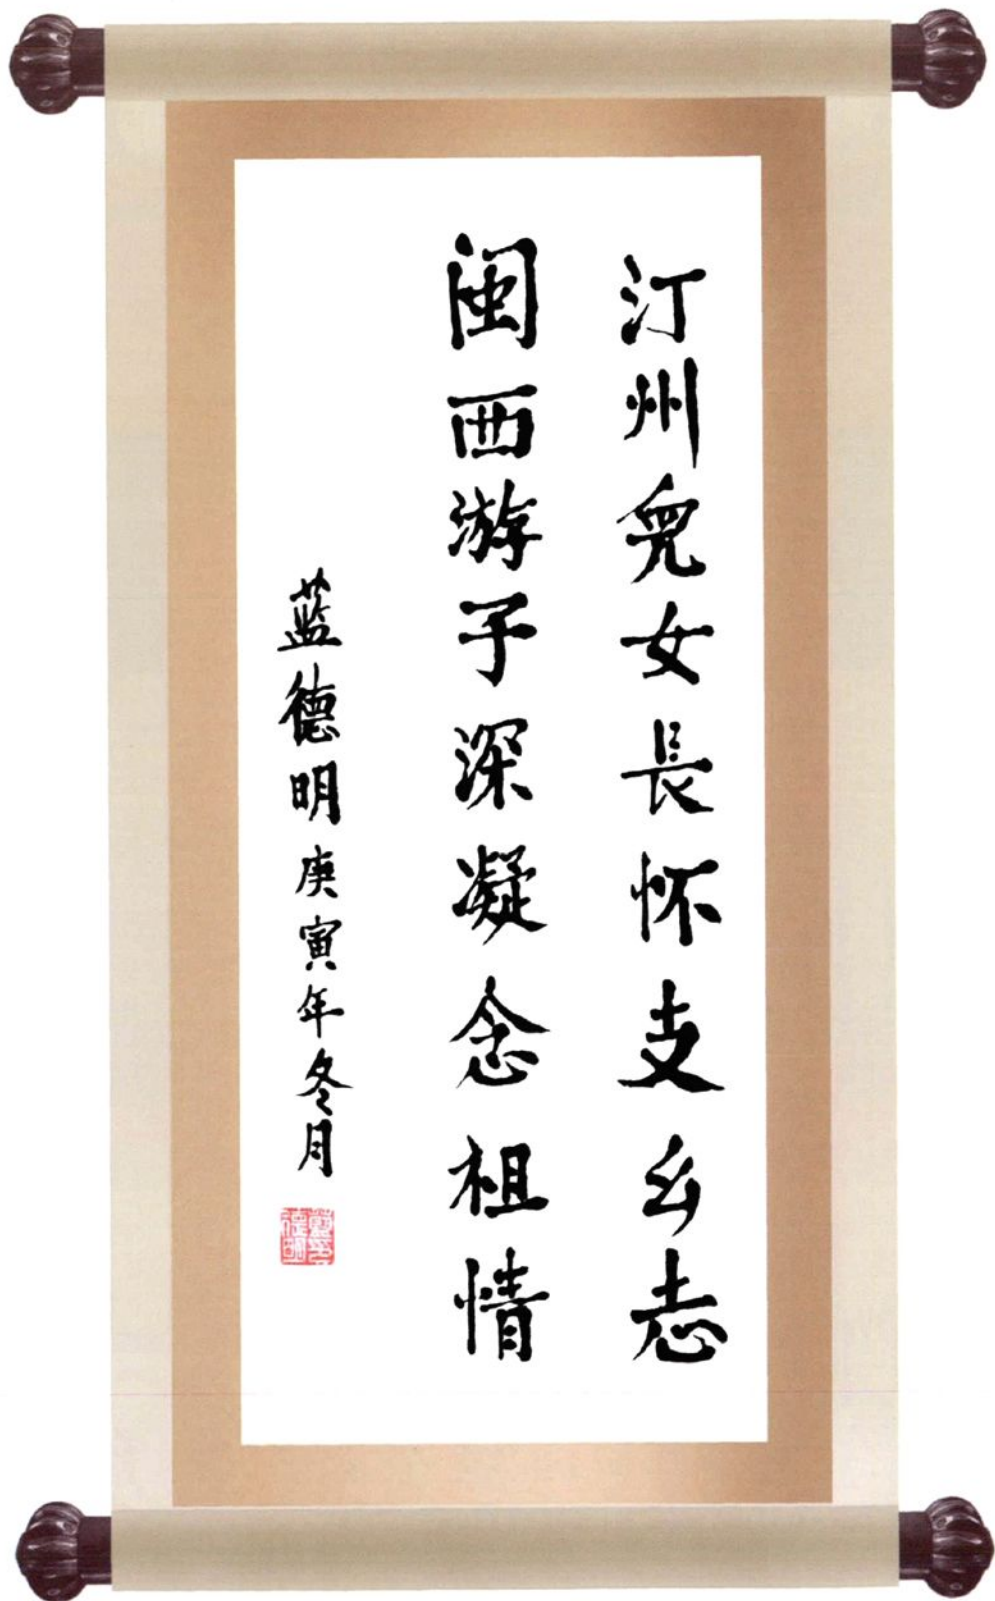 汀州兒女長怀支乡志
闽西游子深凝念祖情
蓝德明庚寅年冬月